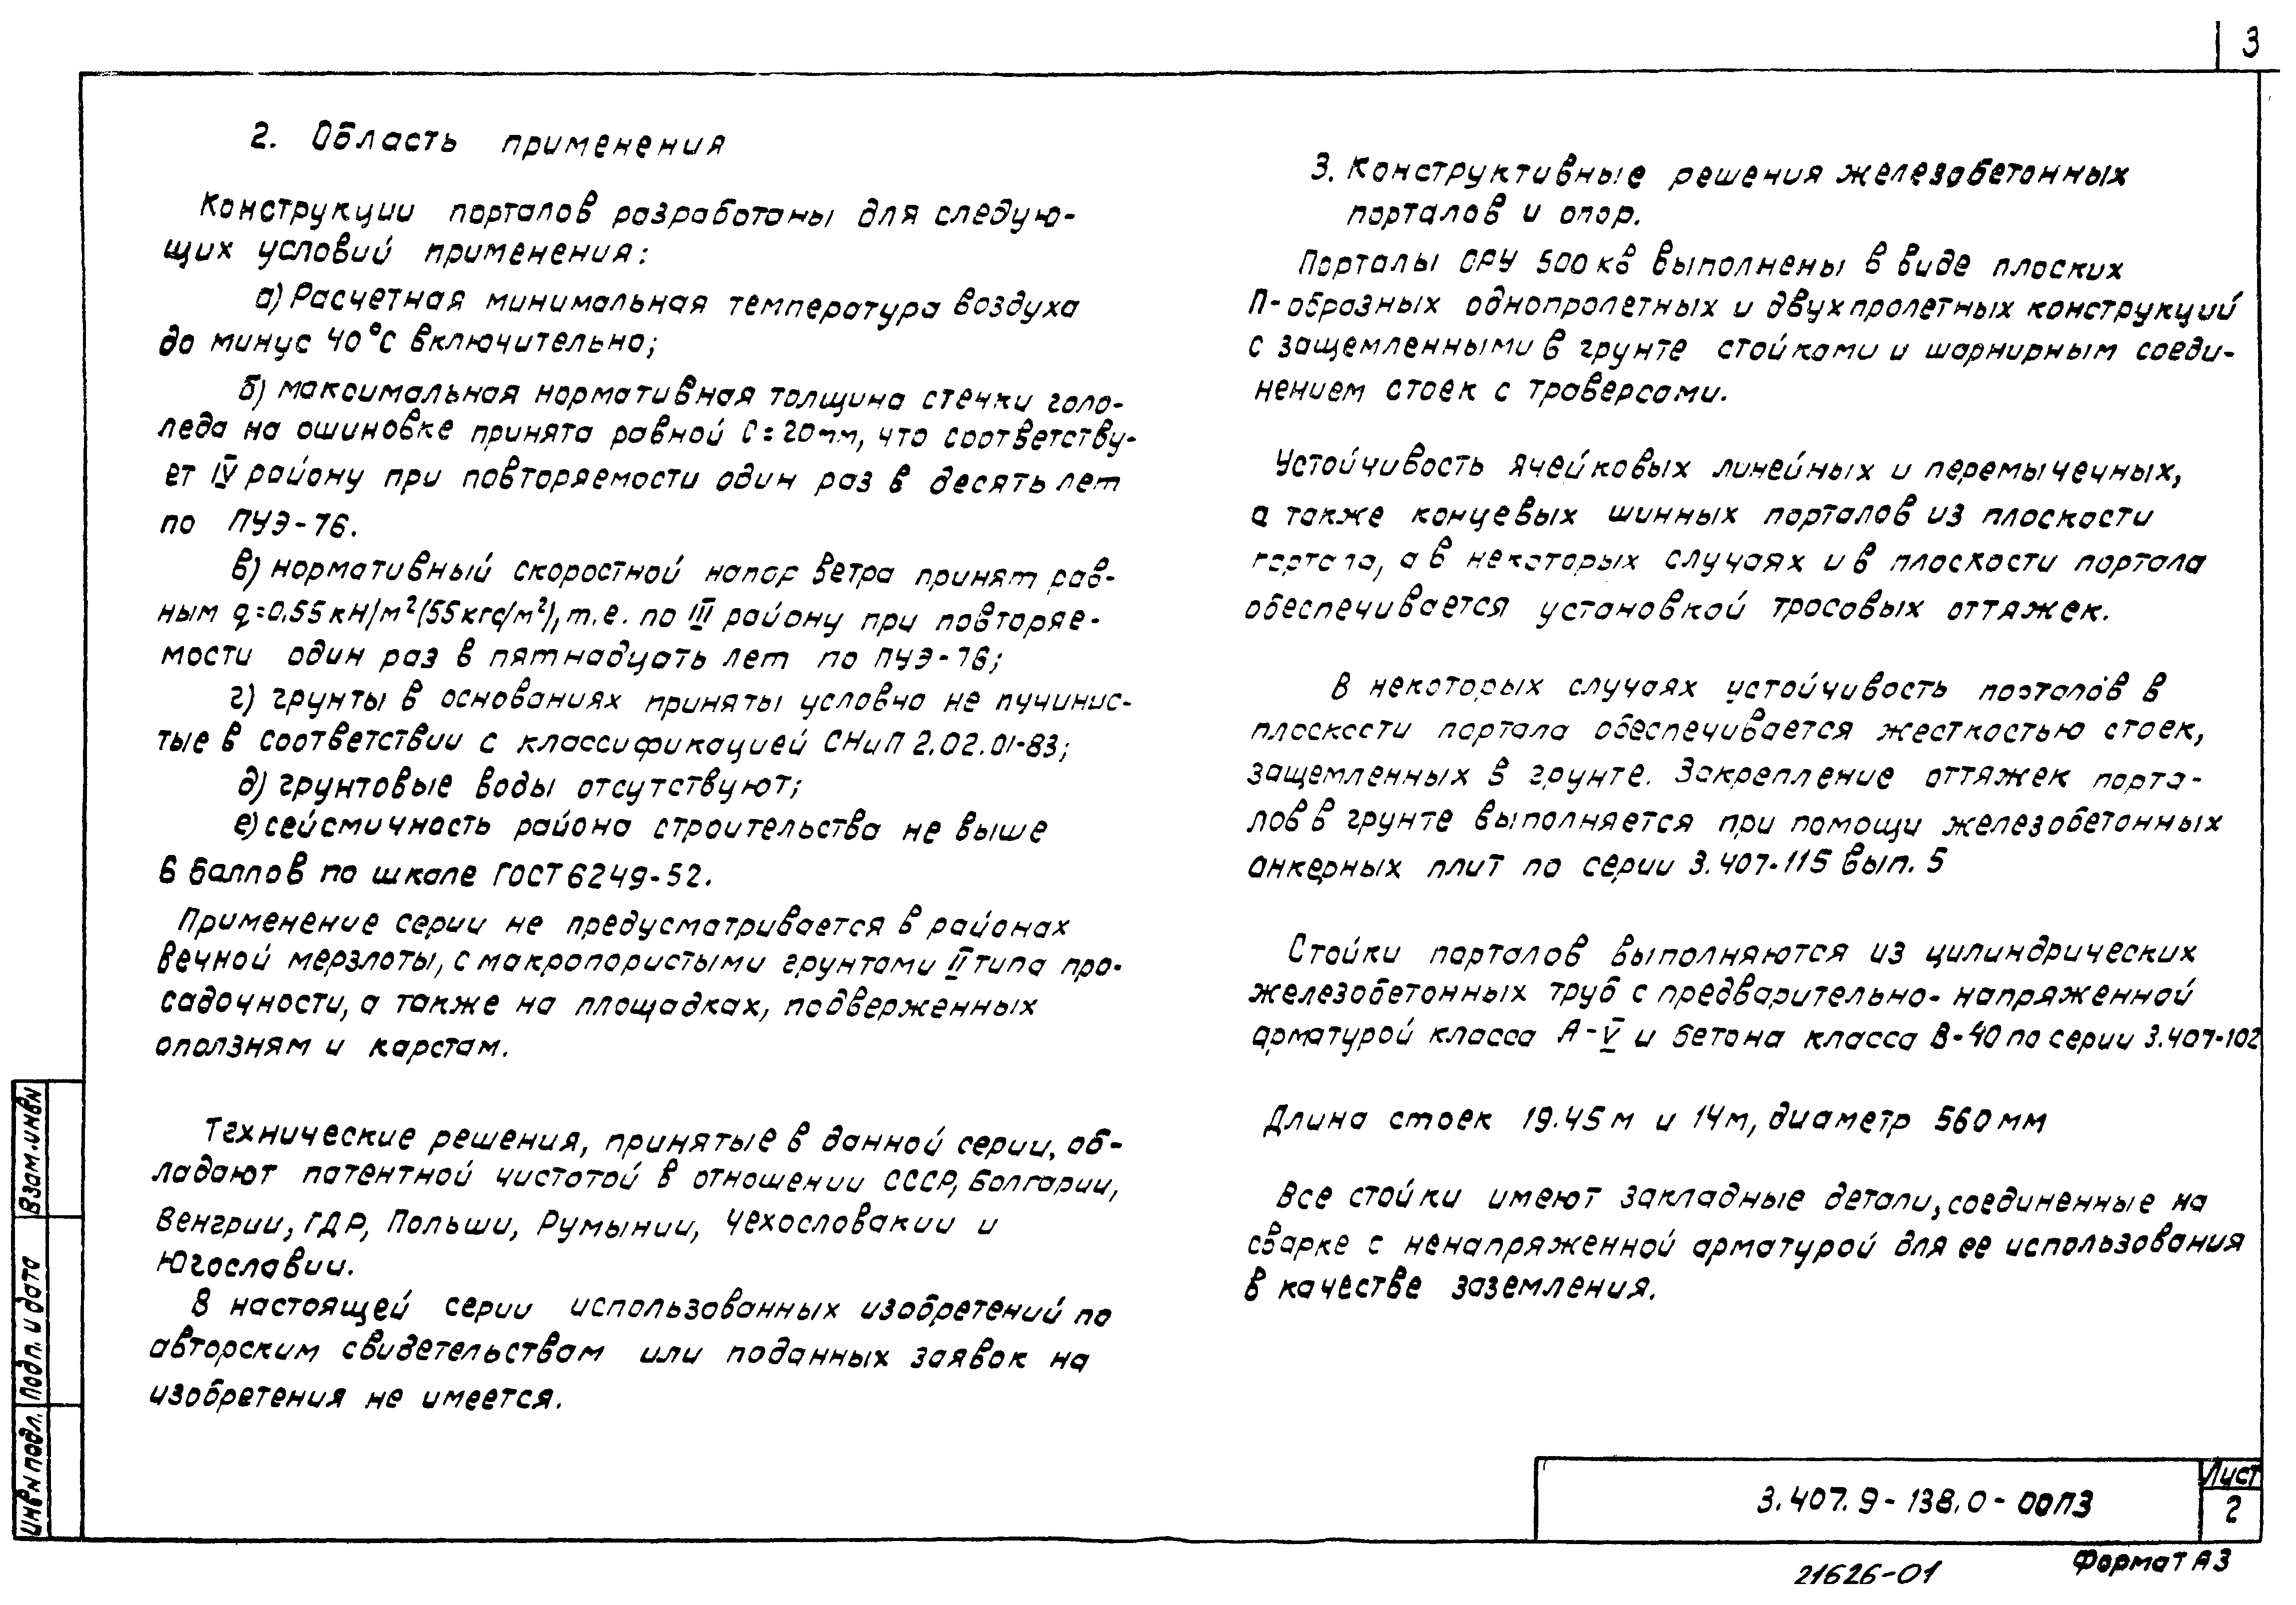 3
2. Область применения
Конструкции порталов разработаны для следую-
щих условий применения:
а) Расчетная минимальная температура воздуха
до минус 40°С включительно;
б) максимальная нормативная толщина стенки голо-
леда на ошиновке принята равной С=20мм, что соответству-
ет IV району при повторяемости один раз в десять лет
по ПУЭ-76.
в) нормативный скоростной напор ветра принят рав-
ным q=0.55 кН/м²(55кгс/м²), т.е. по III району при повторяе-
мости один раз в пятнадцать лет по ПУЭ-76;
г) грунты в основаниях приняты условно не пучинис-
тые в соответствии с классификацией СНиП 2.02.01-83;
д) грунтовые воды отсутствуют;
е) сейсмичность района строительства не выше
6 баллов по шкале ГОСТ 6249-52.
Применение серии не предусматривается в районах
вечной мерзлоты, с макропористыми грунтами II типа про-
садочности, а также на площадках, подверженных
оползням и карстам.
Технические решения, принятые в данной серии, об-
ладают патентной чистотой в отношении СССР, Болгарии,
Венгрии, ГДР, Польши, Румынии, Чехословакии и
Югославии.
В настоящей серии использованных изобретений по
авторским свидетельствам или поданных заявок на
изобретения не имеется.
3. Конструктивные решения железобетонных
порталов и опор.
Порталы ОРУ 500 кв выполнены в виде плоских
П-образных однопролетных и двухпролетных конструкций
с защемленными в грунте стойками и шарнирным соеди-
нением стоек с траверсами.
Устойчивость ячейковых линейных и перемычечных,
а также концевых шинных порталов из плоскости
портала, а в некоторых случаях и в плоскости портала
обеспечивается установкой тросовых оттяжек.
В некоторых случаях устойчивость порталов в
плоскости портала обеспечивается жесткостью стоек,
защемленных в грунте. Закрепление оттяжек порта-
лов в грунте выполняется при помощи железобетонных
анкерных плит по серии 3.407-115 вып. 5
Стойки порталов выполняются из цилиндрических
железобетонных труб с предварительно-напряженной
арматурой класса А-V и бетона класса В-40 по серии 3.407-102
Длина стоек 19.45 м и 14м, диаметр 560 мм
Все стойки имеют закладные детали, соединенные на
сварке с ненапряженной арматурой для ее использования
в качестве заземления.
Взам.инвN
Подп. и дата
ИнвN подл.
3.407.9-138.0-00ПЗ
Лист
2
21626-01
Формат А3